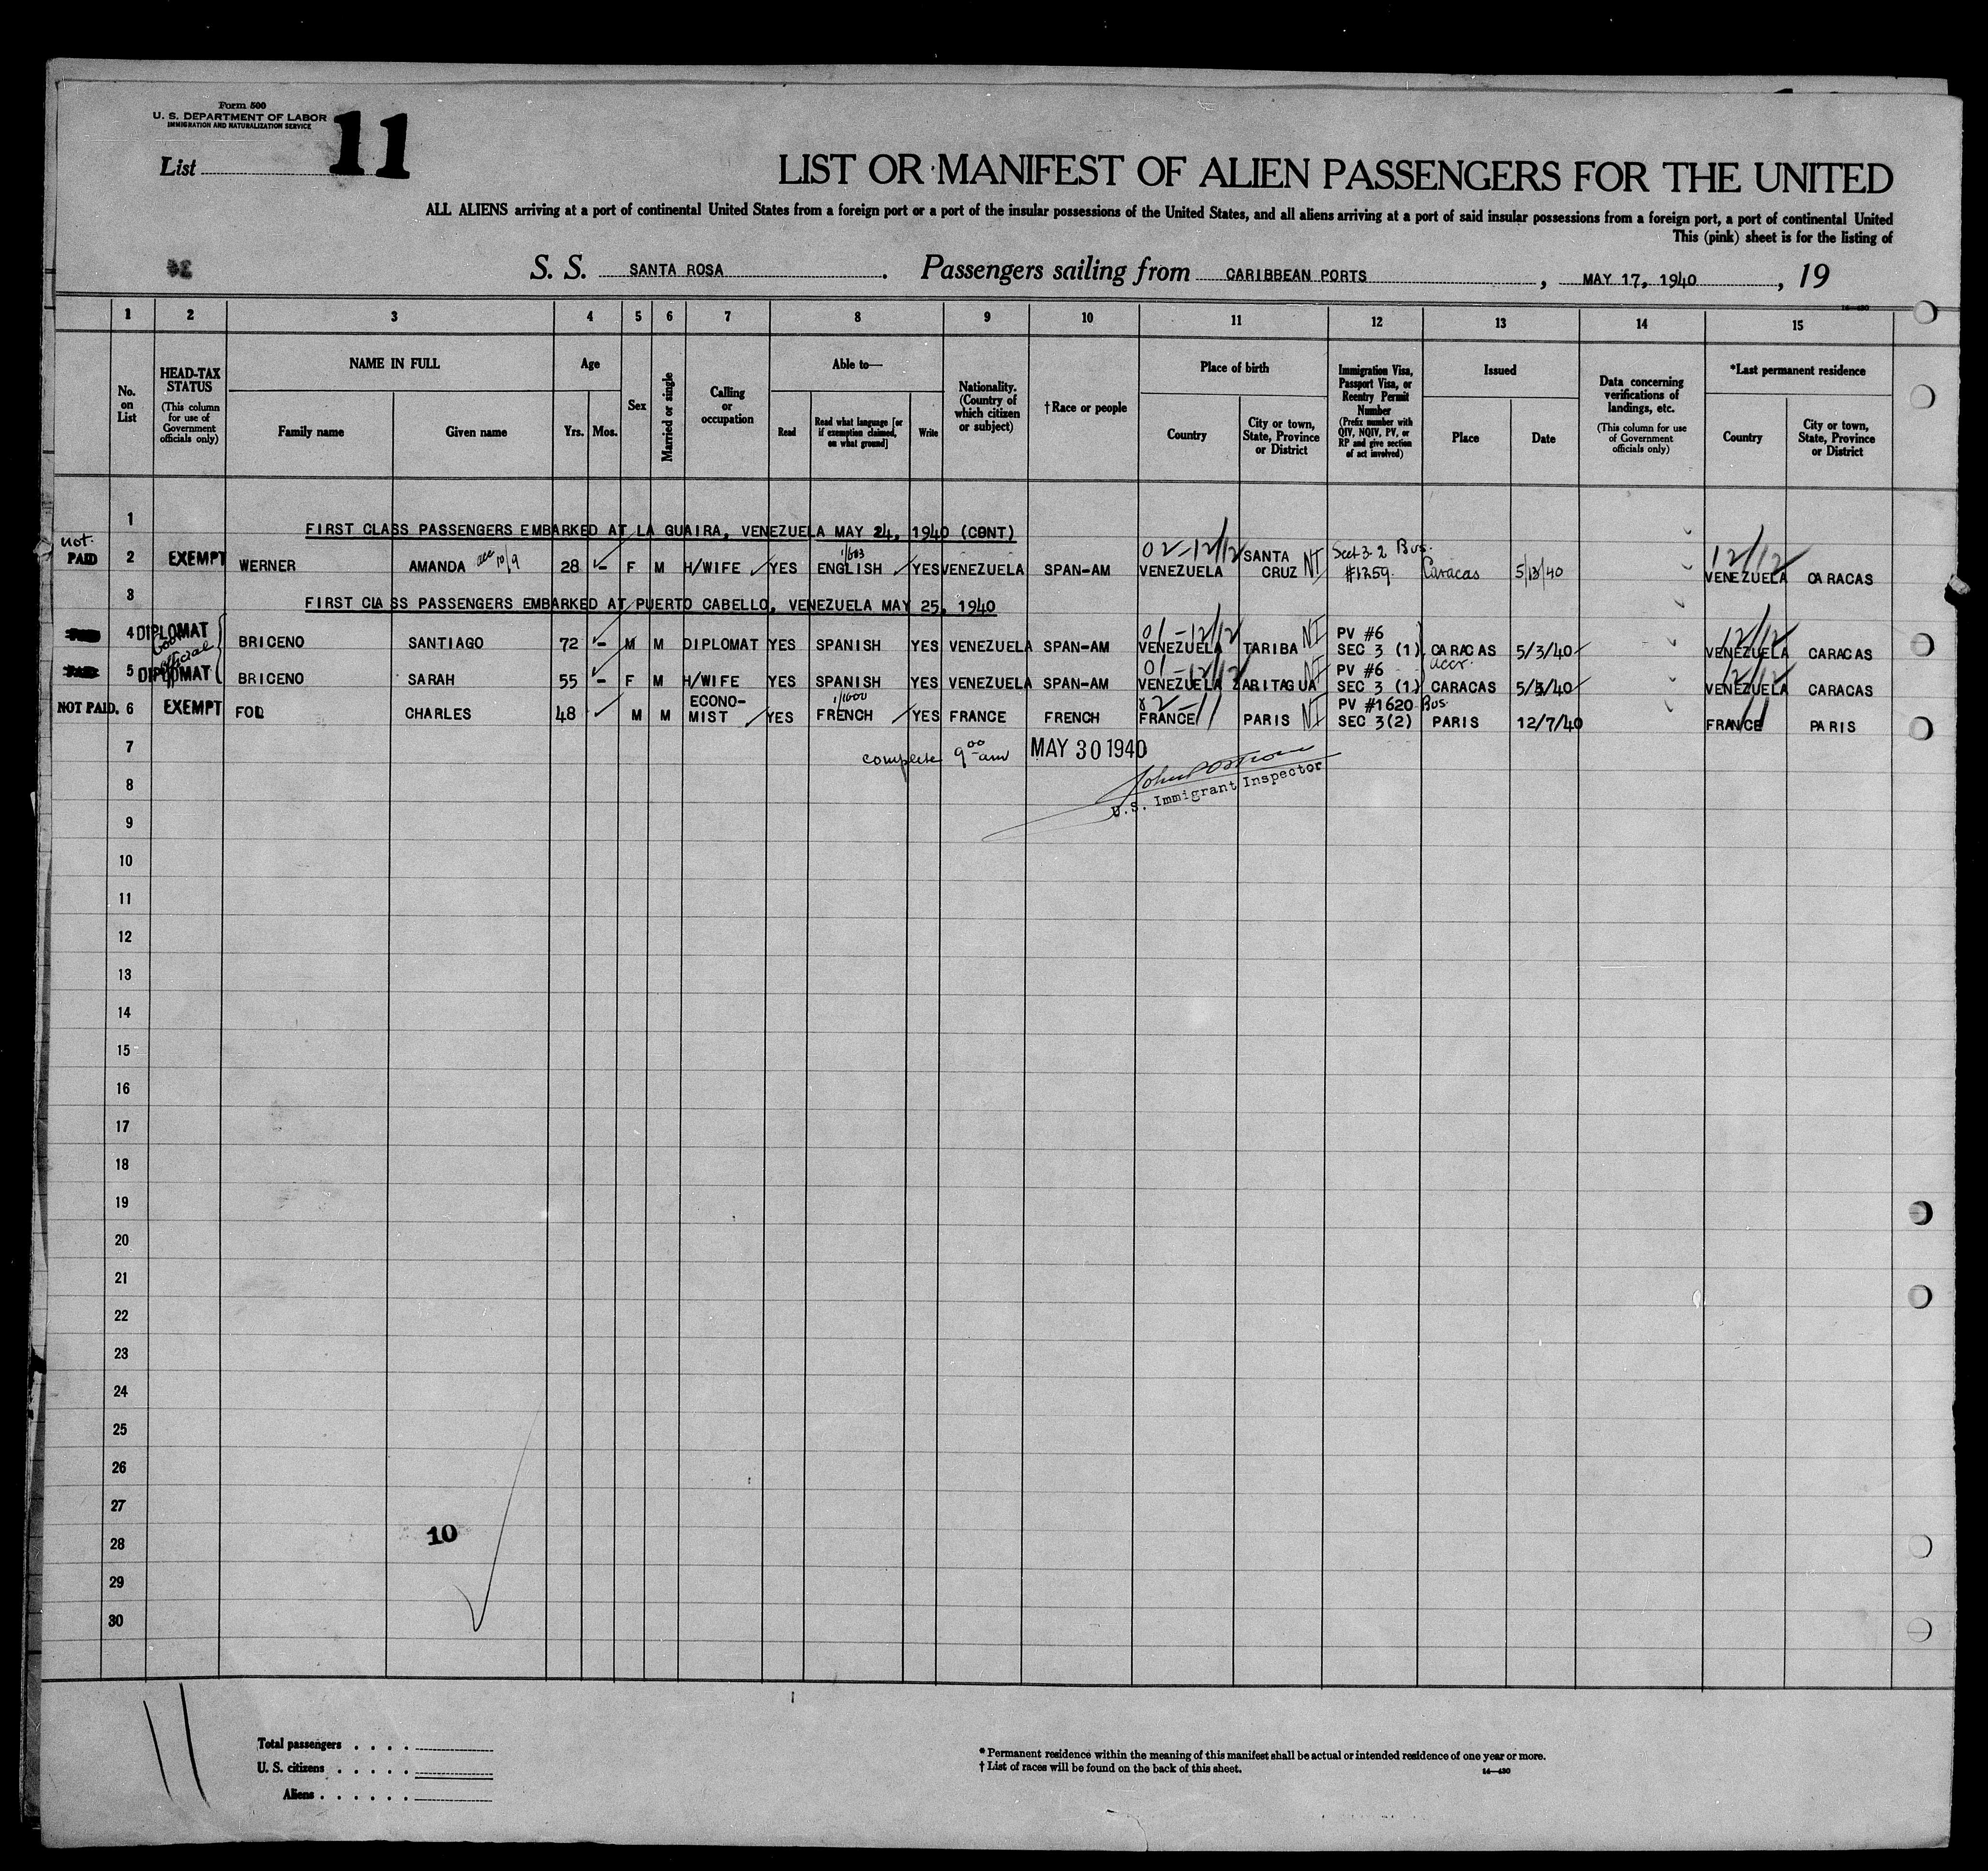 Form 500
U. S. DEPARTMENT OF LABOR
IMMIGRATION AND NATURALIZATION SERVICE
List 11
LIST OR MANIFEST OF ALIEN PASSENGERS FOR THE UNITED
ALL ALIENS arriving at a port of continental United States from a foreign port or a port of the insular possessions of the United States, and all aliens arriving at a port of said insular possessions from a foreign port, a port of continental United
This (pink) sheet is for the listing of
S. S. SANTA ROSA. Passengers sailing from CARIBBEAN PORTS, MAY 17, 1940, 19
16—430
1 2 3 4 5 6 7 8 9 10 11 12 13 14 15
No. on List
HEAD-TAX STATUS
(This column for use of Government officials only)
NAME IN FULL
Family name
Given name
Age
Yrs. Mos.
Sex
Married or single
Calling or occupation
Able to—
Read
Read what language [or if exemption claimed, on what ground]
Write
Nationality. (Country of which citizen or subject)
†Race or people
Place of birth
Country
City or town, State, Province or District
Immigration Visa, Passport Visa, or Reentry Permit Number
(Prefix number with QIV, NQIV, PV, or RP and give section of act involved)
Issued
Place
Date
Data concerning verifications of landings, etc.
(This column for use of Government officials only)
*Last permanent residence
Country
City or town, State, Province or District
1 FIRST CLASS PASSENGERS EMBARKED AT LA GUAIRA, VENEZUELA MAY 24, 1940 (CONT)
not PAID 2 EXEMPT WERNER AMANDA 28 - F M H/WIFE YES ENGLISH YES VENEZUELA SPAN-AM 02-12/12 VENEZUELA SANTA CRUZ NI Sect 3-2 Bus. #1259 Caracas 5/13/40 12/12 VENEZUELA CARACAS
3 FIRST CLASS PASSENGERS EMBARKED AT PUERTO CABELLO, VENEZUELA MAY 25, 1940
4 DIPLOMAT BRICENO SANTIAGO 72 - M M DIPLOMAT YES SPANISH YES VENEZUELA SPAN-AM 01-12/12 VENEZUELA TARIBA NI PV #6 SEC 3 (1) CARACAS 5/3/40 12/12 VENEZUELA CARACAS
official
5 DIPLOMAT BRICENO SARAH 55 - F M H/WIFE YES SPANISH YES VENEZUELA SPAN-AM 01-12/12 VENEZUELA ZARITAGUA NI PV #6 SEC 3 (1) CARACAS 5/3/40 12/12 VENEZUELA CARACAS
NOT PAID. 6 EXEMPT FOL CHARLES 48 M M ECONOMIST YES FRENCH YES FRANCE FRENCH FRANCE PARIS NI PV #1620 Bus SEC 3(2) PARIS 12/7/40 FRANCE PARIS
7 complete 9 00 am MAY 30 1940
8 U.S. Immigrant Inspector
9
10
11
12
13
14
15
16
17
18
19
20
21
22
23
24
25
26
27
28 10
29
30
11
Total passengers . . . .
U. S. citizens . . . . .
Aliens . . . . . .
* Permanent residence within the meaning of this manifest shall be actual or intended residence of one year or more.
† List of races will be found on the back of this sheet.
14—430